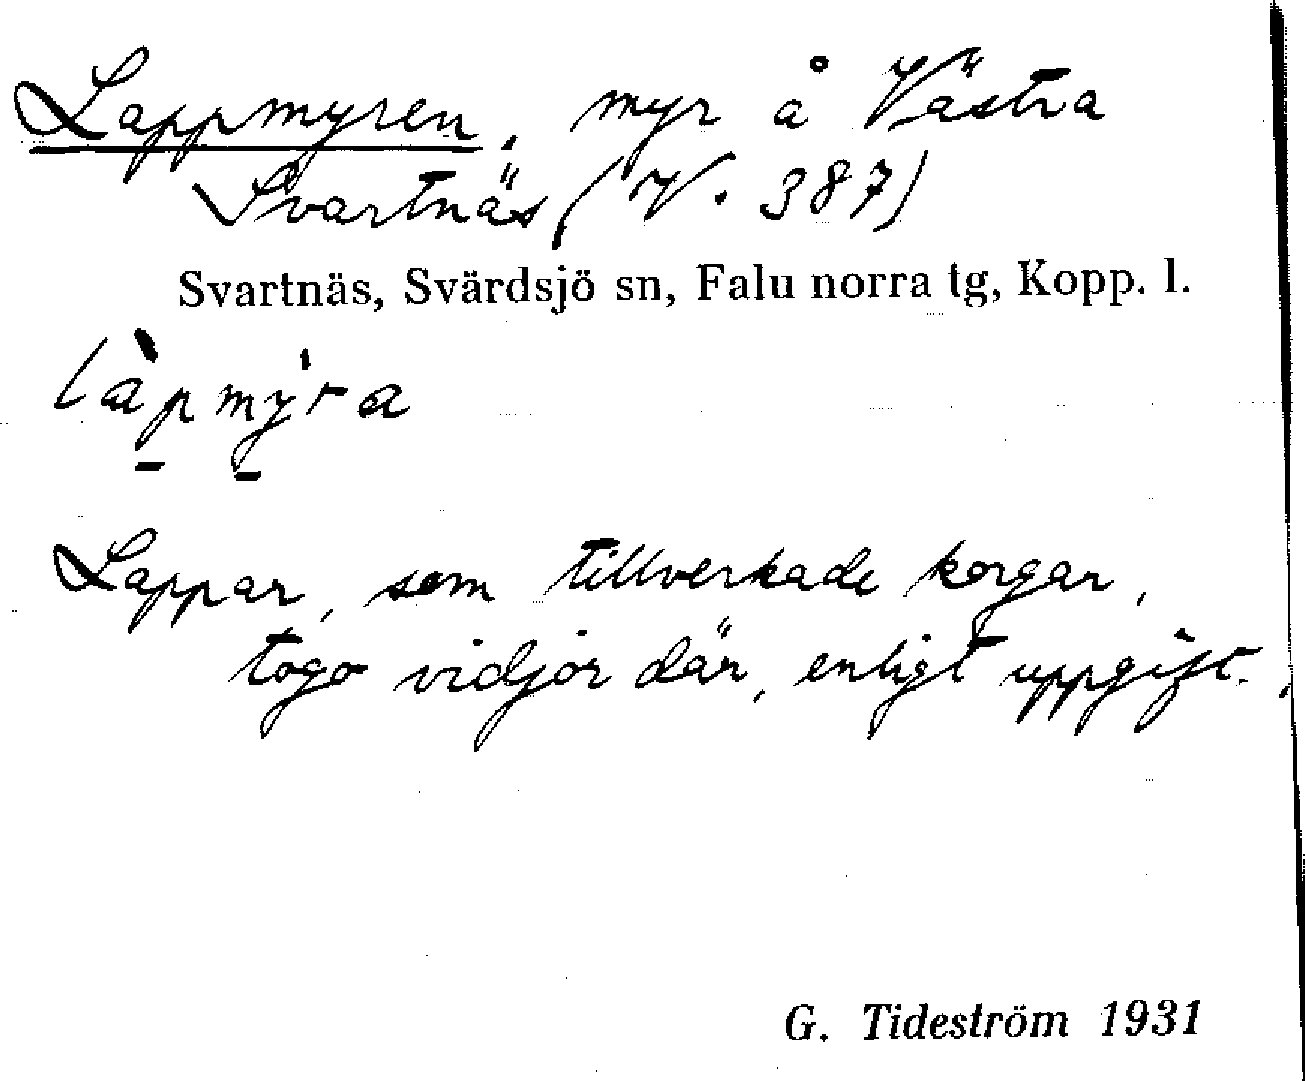 Lappmyren, myr å Västra
Svartnäs (V. 387)
Svartnäs, Svärdsjö sn, Falu norra tg, Kopp. l.
làpmy̍ra
Lappar, som tillverkade korgar,
togo vidjor där, enligt uppgift.
G. Tideström 1931